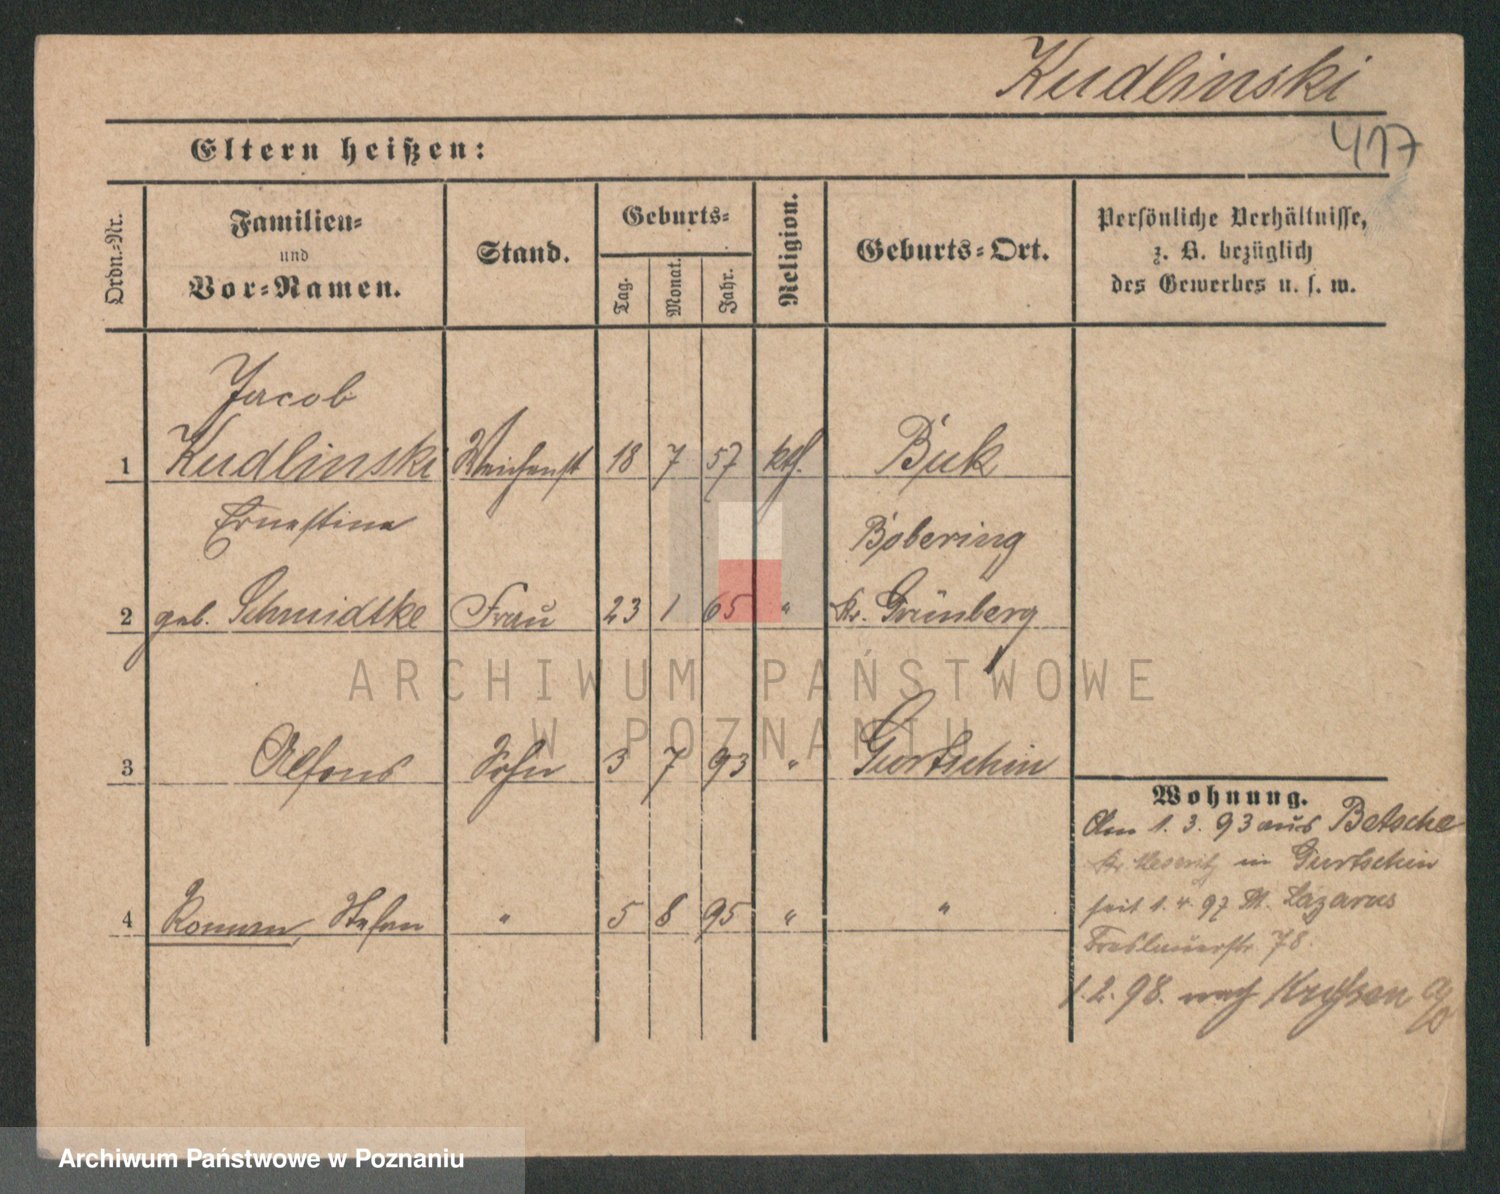 Kudlinski
417
Eltern heißen:
Ordn.-Nr.
Familien-
und
Vor-Namen.
Stand.
Geburts-
Tag.
Monat.
Jahr.
Religion.
Geburts-Ort.
Persönliche Verhältnisse,
z. B. bezüglich
des Gewerbes u. s. w.
Jacob
1 Kudlinski Weichenst 18 7 57 kth. Buk
Ernestine Bobering
2 geb. Schmidtke Frau 23 1 65 " Kr. Grünberg
3 Alfons Sohn 3 7 93 " Gurtschin
4 Roman, Stefan " 5 8 95 " "
Wohnung.
Am 1. 3. 93 aus Betsche
Kr. Meseritz in Gurtschin
seit 1. 4. 97 St. Lazarus
78.
1. 2. 98. nach
ARCHIWUM PAŃSTWOWE
W POZNANIU
Archiwum Państwowe w Poznaniu